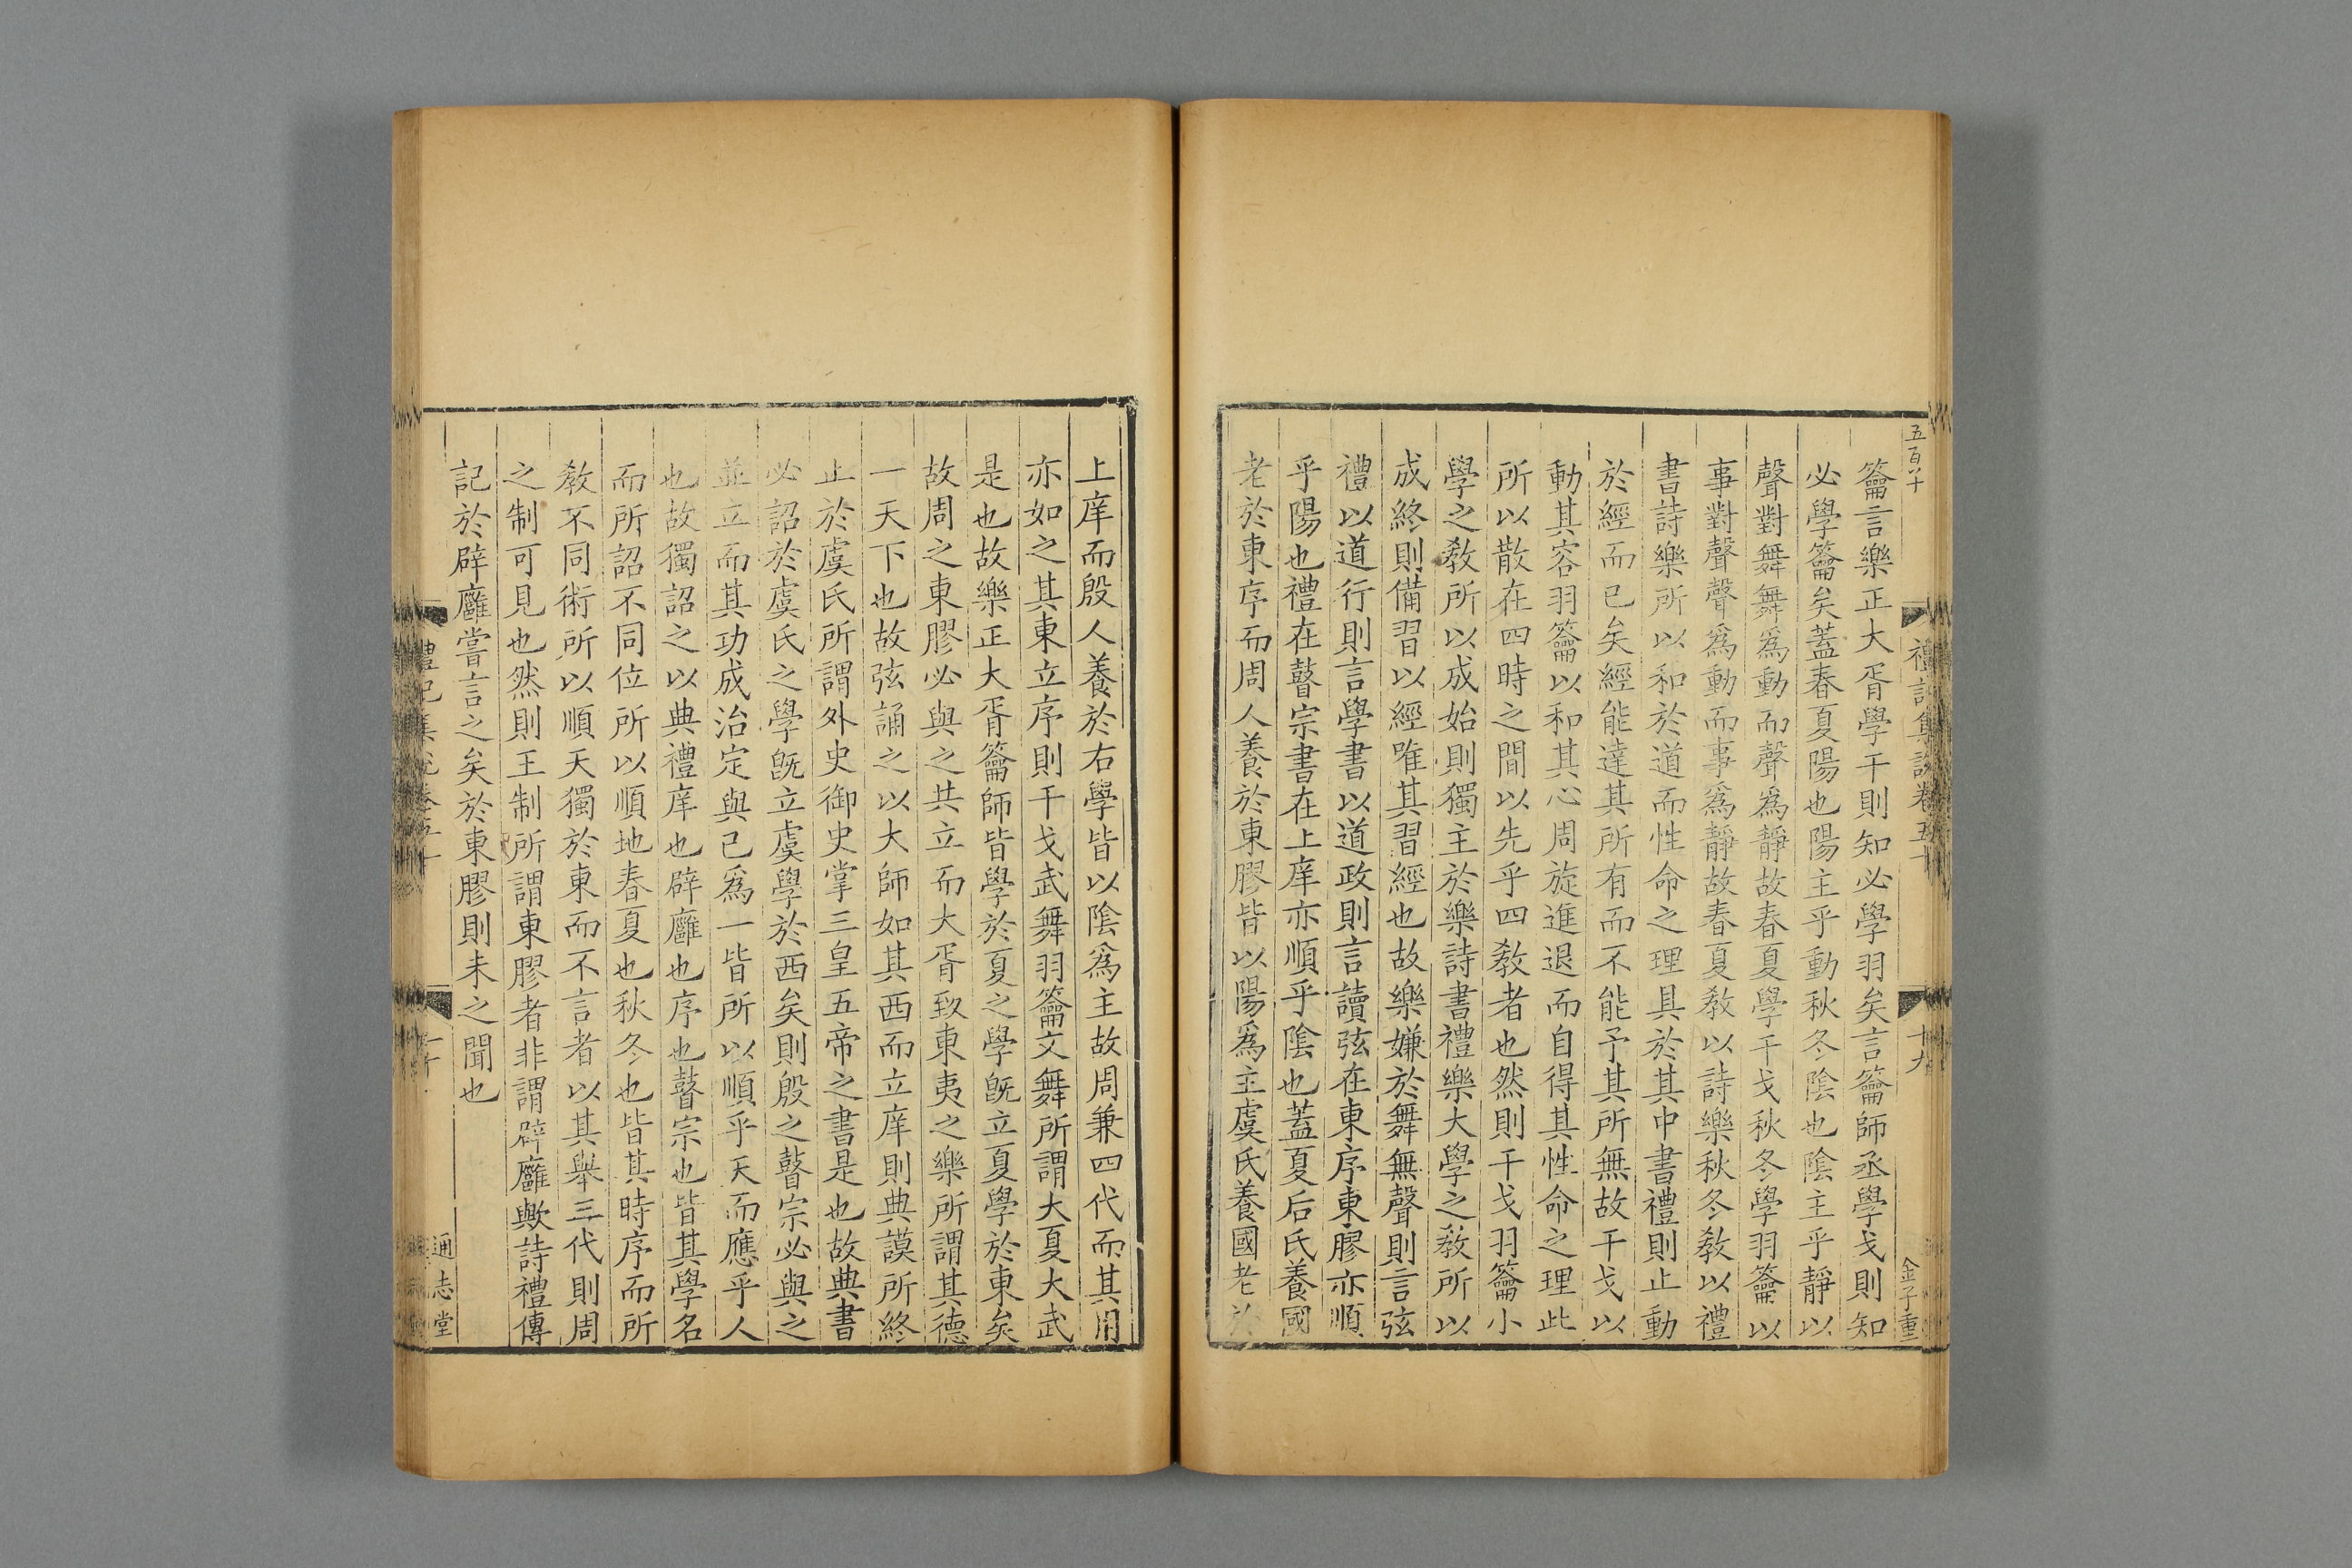 五百八十
禮記集說卷五十
十九
金子重
籥言樂正大胥學干則知必學羽矣言籥師丞學戈則知
必學籥矣蓋春夏陽也陽主乎動秋冬陰也陰主乎靜以
聲對舞舞爲動而聲爲靜故春夏學干戈秋冬學羽籥以
事對聲聲爲動而事爲靜故春夏敎以詩樂秋冬敎以禮
書詩樂所以和於道而性命之理具於其中書禮則止動
於經而已矣經能達其所有而不能予其所無故干戈以
動其容羽籥以和其心周旋進退而自得其性命之理此
所以散在四時之間以先乎四敎者也然則干戈羽籥小
學之敎所以成始則獨主於樂詩書禮樂大學之敎所以
成終則備習以經唯其習經也故樂嫌於舞無聲則言弦
禮以道行則言學書以道政則言讀弦在東序東膠亦順
乎陽也禮在瞽宗書在上庠亦順乎陰也蓋夏后氏養國
老於東序而周人養於東膠皆以陽爲主虞氏養國老於
上庠而殷人養於右學皆以陰爲主故周兼四代而其用
亦如之其東立序則干戈武舞羽籥文舞所謂大夏大武
是也故樂正大胥籥師皆學於夏之學旣立夏學於東矣
故周之東膠必與之共立而大胥致東夷之樂所謂其德
一天下也故弦誦之以大師如其西而立庠則典謨所終
止於虞氏所謂外史御史掌三皇五帝之書是也故典書
必詔於虞氏之學旣立虞學於西矣則殷之瞽宗必與之
並立而其功成治定與已爲一皆所以順乎天而應乎人
也故獨詔之以典禮庠也辟廱也序也瞽宗也皆其學名
而所詔不同位所以順地春夏也秋冬也皆其時序而所
敎不同術所以順天獨於東而不言者以其舉三代則周
之制可見也然則王制所謂東膠者非謂辟廱歟詩禮傳
記於辟廱嘗言之矣於東膠則未之聞也
禮記集說卷五十
二十
通志堂